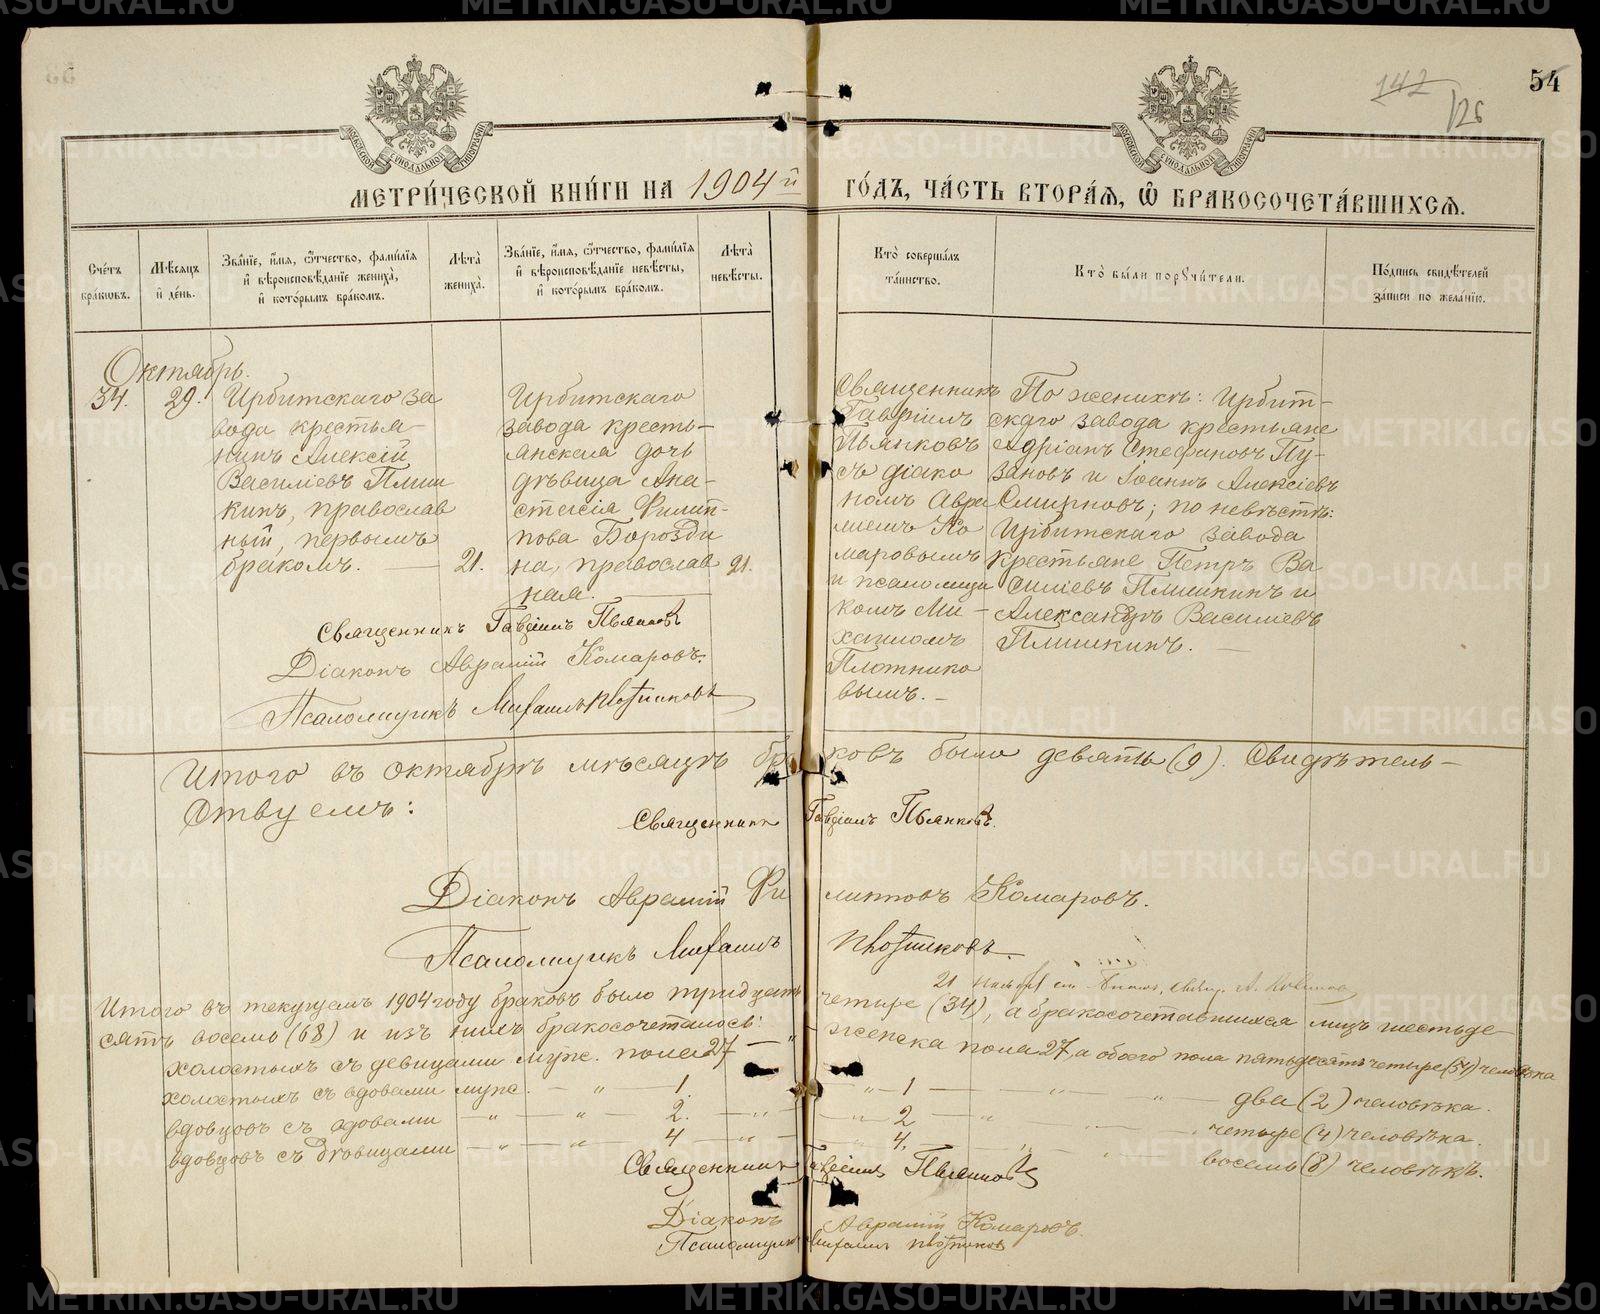 54
142
126
МОСКОВСКОЙ СИНОДАЛЬНОЙ ТИПОГРАФІИ
МОСКОВСКОЙ СИНОДАЛЬНОЙ ТИПОГРАФІИ
МЕТРИ́ЧЕСКОЙ КНИ́ГИ НА 1904й ГО́ДЪ, ЧА́СТЬ ВТОРА́Ѧ, Ѽ БРАКОСОЧЕТА́ВШИХСѦ.
Сче́тъ бра́кѡвъ.
Мѣ́сѧцъ и҆ де́нь.
Зва́нїе, и҆́мѧ, ѻ҆́тчество, фами́лїѧ и҆ вѣроисповѣ́данїе жениха̀, и҆ кото́рымъ бра́комъ.
Лѣта̀ жениха̀.
Зва́нїе, и҆́мѧ, ѻ҆́тчество, фами́лїѧ и҆ вѣроисповѣ́данїе невѣ́сты, и҆ кото́рымъ бра́комъ.
Лѣта̀ невѣ́сты.
Кто̀ соверша́лъ та́инство.
Кто̀ бы́ли порꙋчи́тели.
По́дпись свидѣ́телей за́писи по жела́нїю.
Октябрь.
34.
29.
Ирбитскаго за
вода крестья-
нинъ Алексій
Василіевъ Плиш
кинъ, православ
ный, первымъ
бракомъ. —
21.
Ирбитскаго
завода кресть-
янская дочь
дѣвица Ана-
стасія Филип-
пова Борозди
на, православ
ная.
21.
Священникъ
Гавріилъ
Пьянковъ
съ діако
номъ Авра
міемъ Ко
маровымъ
и псаломщи
комъ Ми-
хаиломъ
Плотнико
вымъ. –
По женихѣ: Ирбит-
скаго завода крестьяне
Адріанъ Стефановъ Пу-
зановъ и Іоаннъ Алексіевъ
Смирновъ; по невѣстѣ:
Ирбитскаго завода
крестьяне Петръ Ва
силіевъ Плишкинъ и
Александръ Василіевъ
Плишкинъ. —
Священникъ Гавріилъ Пьянковъ
Діаконъ Аврамій Комаровъ.
Псаломщикъ Михаилъ Плотниковъ
Итого въ октябрѣ мѣсяцѣ браковъ было девять (9). Свидѣтель-
ствуемъ:
Священникъ Гавріилъ Пьянковъ.
Діаконъ Аврамій Филипповъ Комаровъ.
Псаломщикъ Михаилъ Плотниковъ.
Итого въ текущемъ 1904 году браковъ было тридцать четыре (34), а бракосочетавшихся лицъ шестьде-
сятъ восемь (68) и изъ нихъ бракосочеталось:
холостыхъ съ дѣвицами муж. пола 27 — " — женска пола 27, а обоего пола пятьдесятъ четыре (54) человѣка
холостыхъ съ вдовами муж. — " — 1. — " — 1 — " — " — два (2) человѣка.
вдовцовъ съ вдовами — " — " — 2. — " — " — 2 — " — " — четыре (4) человѣка.
вдовцовъ съ дѣвицами — " — " — 4 — " — " — 4. — " — " восемь (8) человѣкъ.
Священникъ Гавріилъ Пьянковъ
Діаконъ Аврамій Комаровъ.
Псаломщикъ Михаилъ Плотниковъ